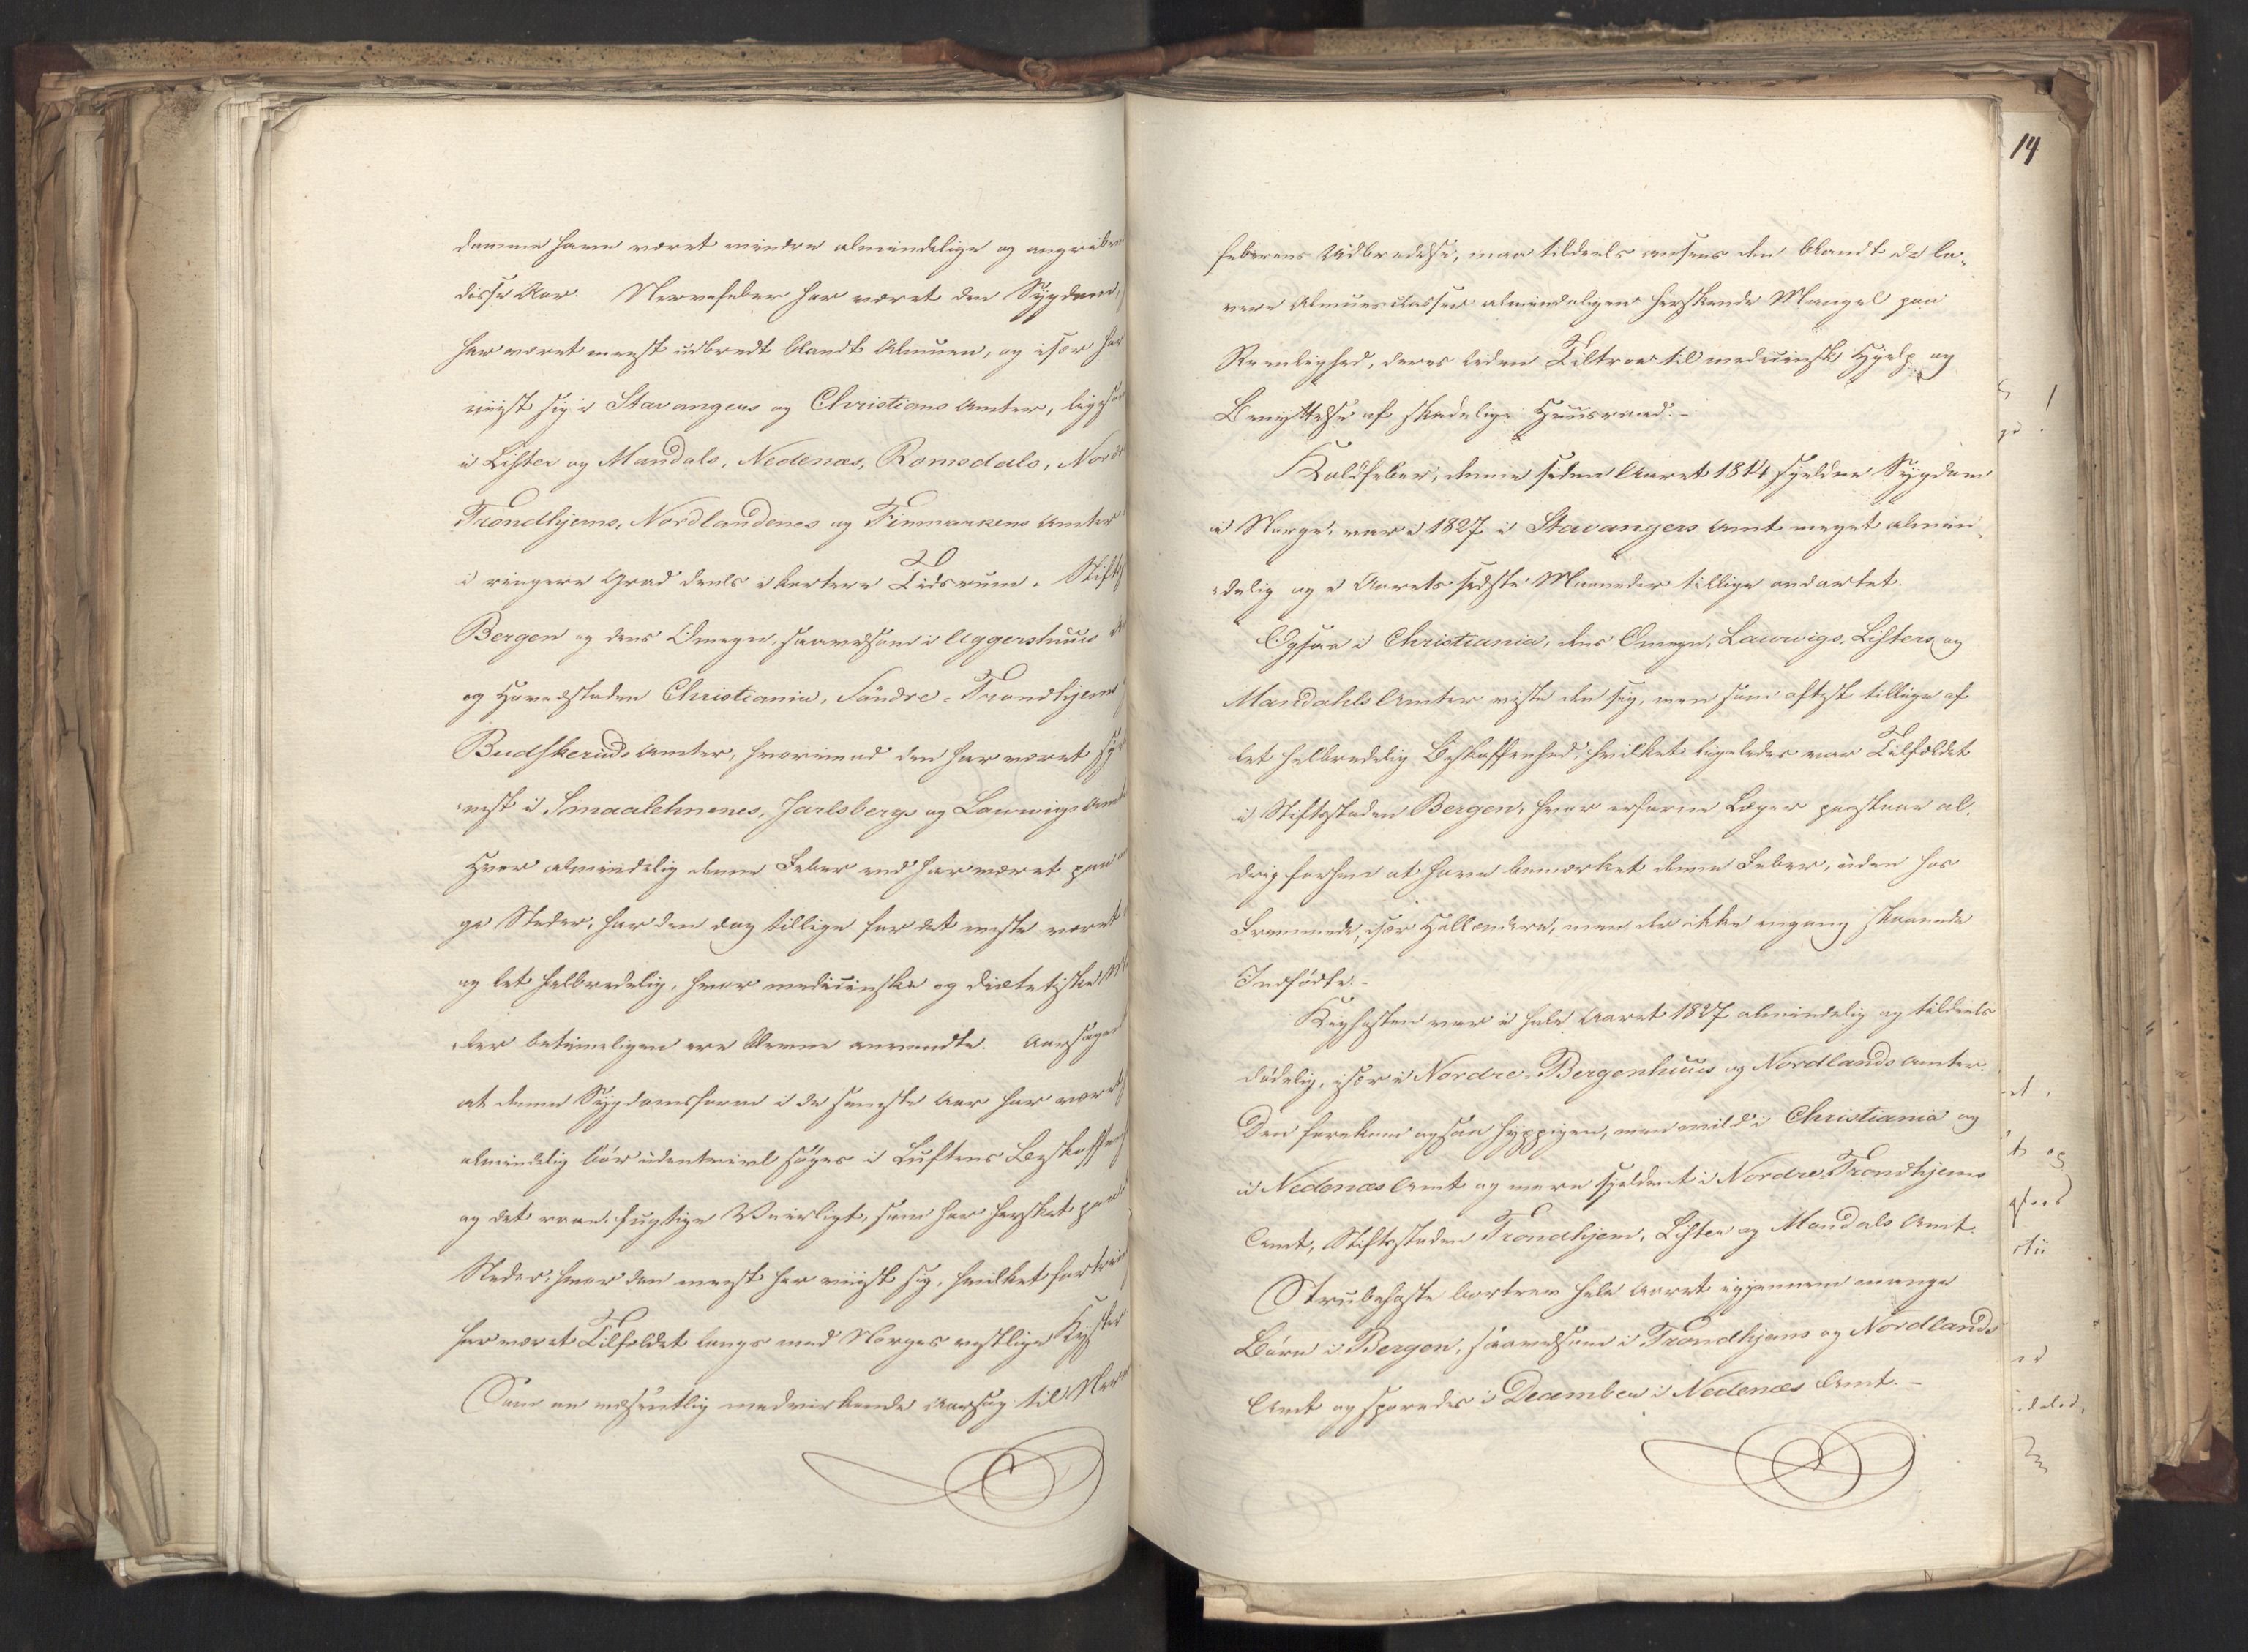 domme have været mindre almindelige og angribe
disse Aar. Nervefeber har været den Sygdom,
har været meest udbredt blandt Almuen, og især ha
viist sig i Stavangers og Christians Amter, liges
i Lister og Mandals, Nedenæs, Romsdals, Nord
Trondhjems, Nordlandenes og Finmarkens Amter
i ringere Grad deels i kortere Tidsrum. Stift
Bergen og dens Omegn, saavelsom i Aggershuus
og Hovedstaden Christiania, Söndre-Trondhjems
Budskeruds Amter, hvorimod den har været
est i Smaalehnenes, Jarlsbergs og Laurvigs Amt
Hvor almindelig denne Feber end har været paa
ge Steder, har den dog tillige for det meste været
og let helbredelig, hvor medicinske og diætetiske
ler betimeligen ere blevne anvendte. Aarsagen
at denne Sygdomsform i de seneste Aar har været
almindelig bör udentvivl söges i Luftens Beskaffen
og det raae, fugtige Veirligt, som har hersket paa
Steder, hvor den meest har viist sig, hvilket fortrin
har været Tilfældet langs med Norges vestlige Kyster
Som en væsentlig medvirkende Aarsag til Nerv
14
feberens Udbredelse, maa tildeels ansees den blandt de la-
vere Almuesclasser almindeligen herskende Mangel paa
Reenlighed, deres liden Tiltroe til medicinsk Hjelp og
Benyttelse af skadelige Huusraad.-
Koldfeber, denne siden Aaret 1814 sjeldne Sygdom
i Norge, var i 1827 i Stavangers Amt meget almin-
delig og i Aarets sidste Maaneder tillige ondartet.
Ogsaa i Christiania, dens Omegn, Laurvigs, Listers og
Mandahls Amter viste den sig, men som oftest tillige af
let helbredelig Beskaffenhed, hvilket ligeledes var Tilfældet
i Stiftsstaden Bergen, hvor erfarne Læger paastaae al-
drig forhen at have bemærket denne Feber, uden hos
Fremmede, især Hollændere, men der ikke engang skaanede
Indfödte.-
Kighosten var i hele Aaret 1827 almindelig og tildeels
dödelig, især i Nordre-Bergenhuus og Nordlands Amter.
Den forekom ogsaa hyppigen, men mild i Christiania og
i Nedenæs Amt og mere sjeldent i Nordre-Trondhjems
Amt, Stiftsstaden Trondhjem, Lister og Mandals Amt.
Strubehoste bortrev hele Aaret igjennem mange
Börn i Bergen, saavelsom i Trondhjems og Nordlands
Amt og sporedes i December i Nedenæs Amt.-